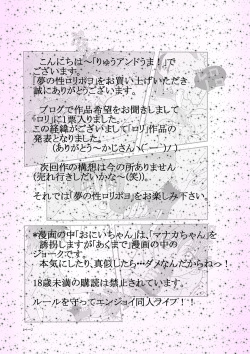 こんにちは～「りゅうアンドうま！」で
ございます。
「夢の性ロリポヨ」をお買い上げいただき
誠にありがとうございます。
ブログで作品希望をお聞きしまして
「ロリ」に1票入りました。
この経緯がございまして「ロリ」作品の
発表となりました。
(ありがとう～かじさんヽ(´ー｀)ノ)
次回作の構想は今の所ありません
(売れ行きしだいかな～(笑))。
それでは「夢の性ロリポヨ」をお楽しみ下さい。
*漫画の中「おにいちゃん」は、「マナカちゃん」を
誘拐しますが「あくまで」漫画の中の
ジョークです。
本気にしたり、真似したら…ダメなんだからねっ！
18歳未満の購読は禁止されています。
ルールを守ってエンジョイ同人ライフ！！